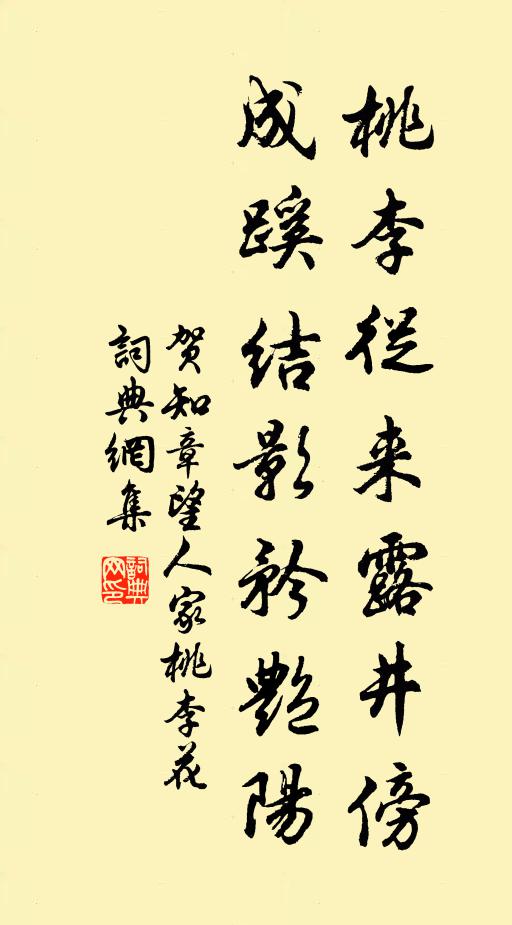 桃李從来露井傍
成蹊結影矜艷陽
賀知章望人家桃李花
詞典網集
詞典網印